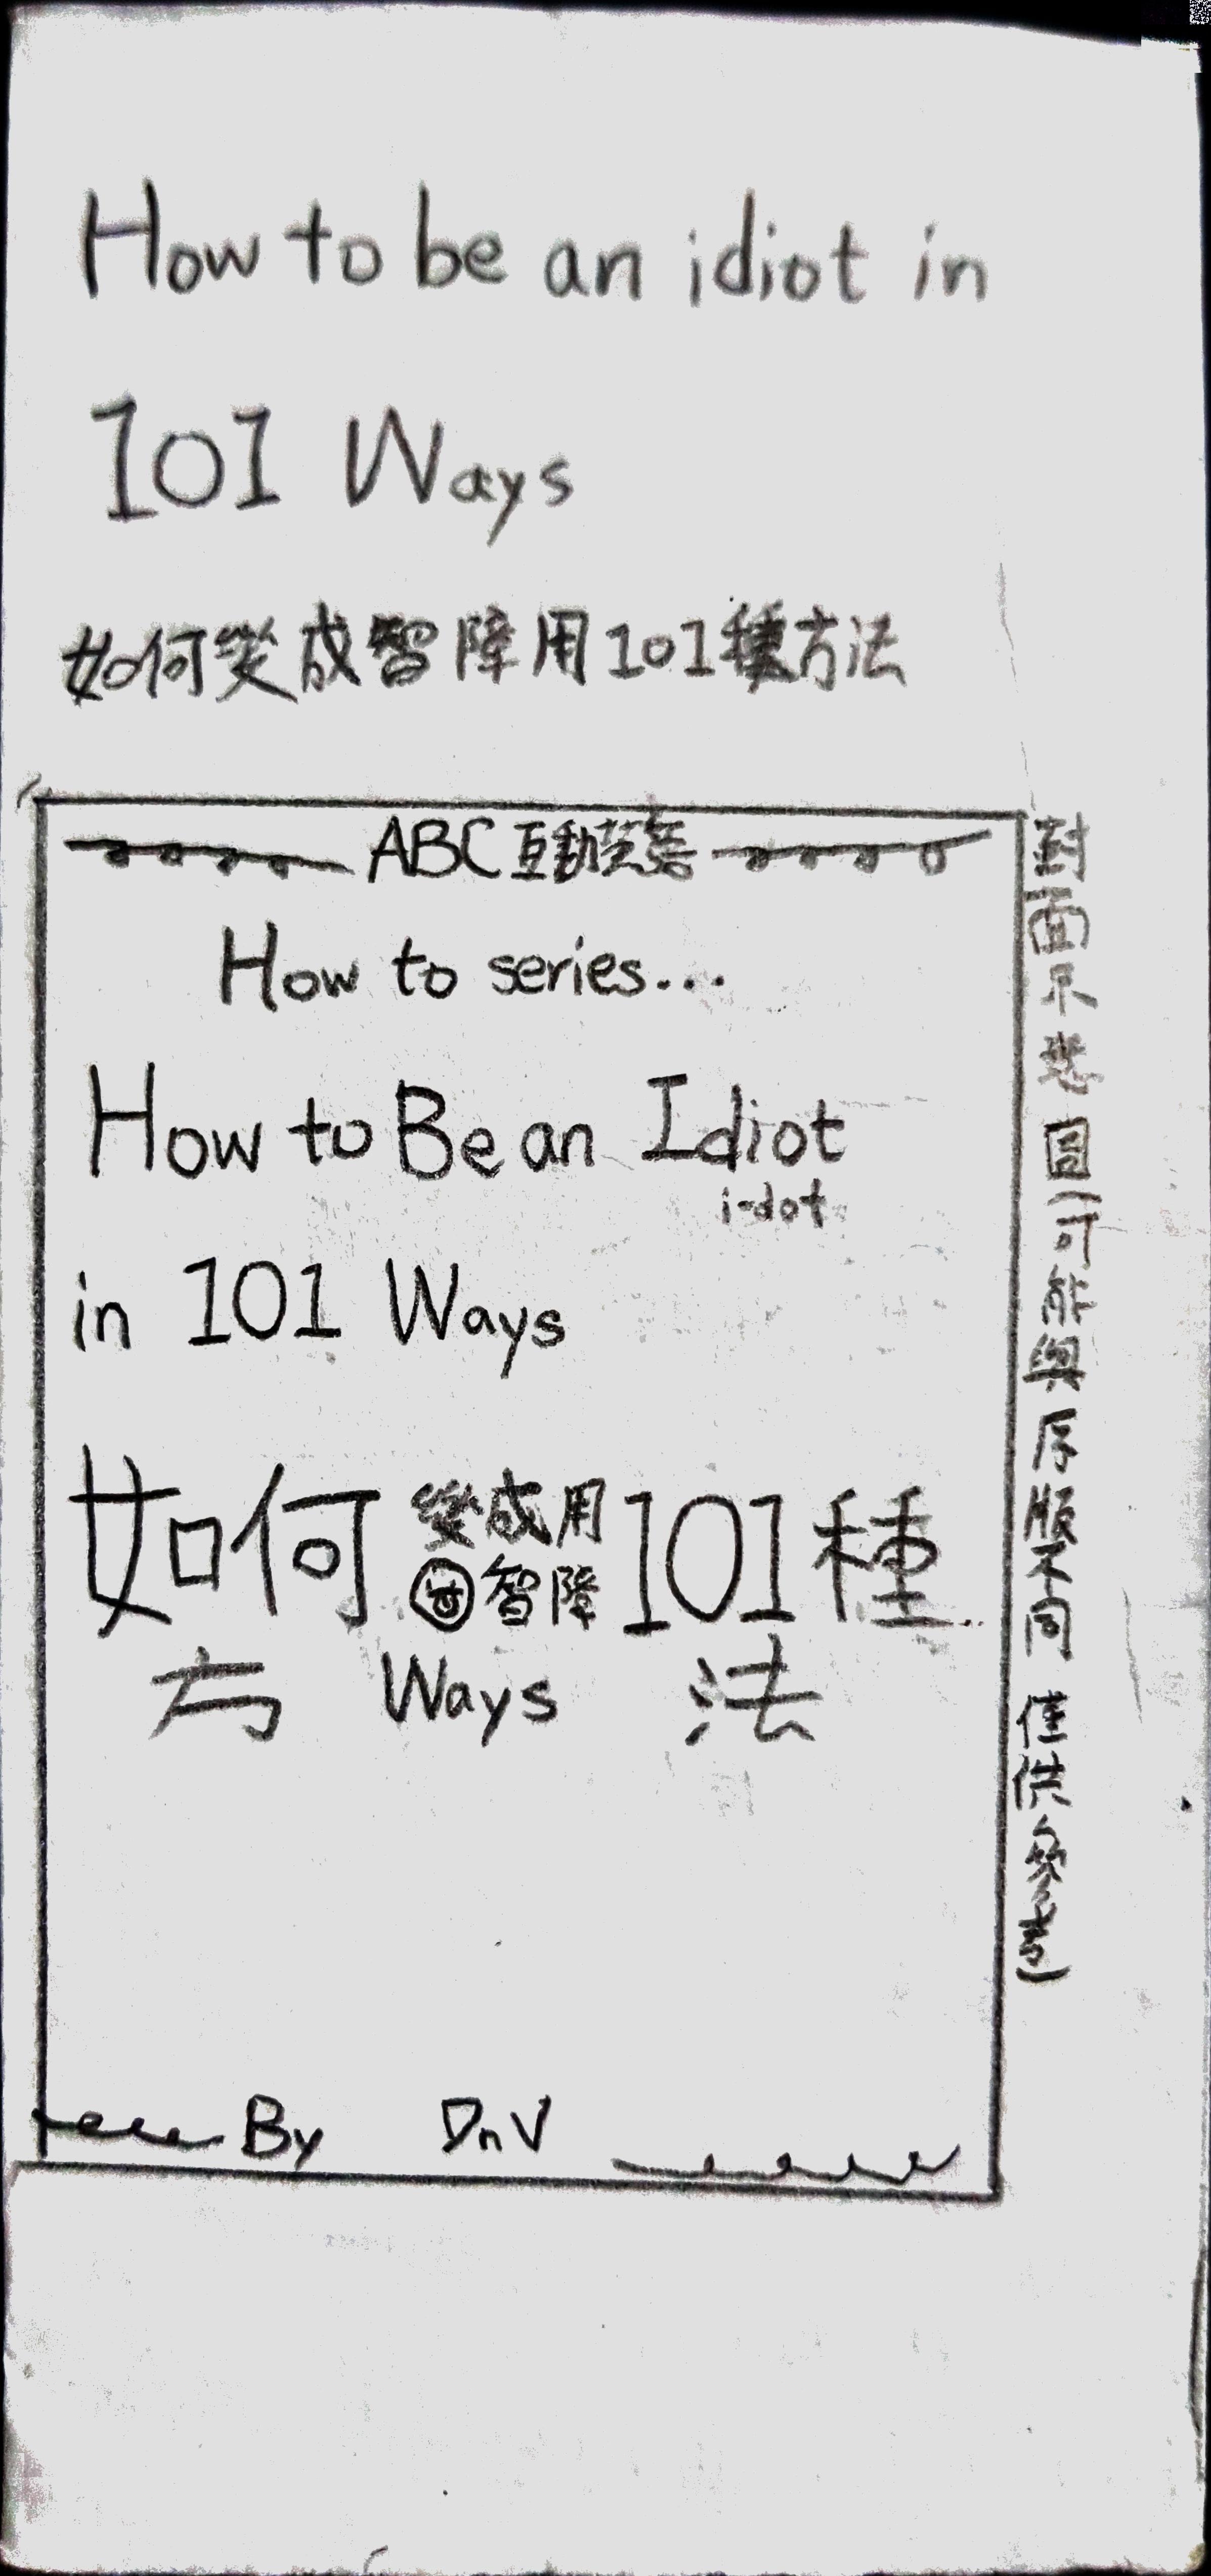 How to be an idiot in
101 Ways
如何變成智障用101種方法
ABC互動英語
How to series...
How to Be an Idiot
i-dot
in 101 Ways
如何變成用101種
智障
方 Ways 法
By DnV
封面示意圖(可能與原版不同 僅供參考)